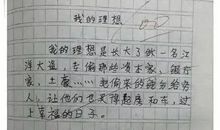 我的理想
我的理想是长大了做一名江
洋大盗，专偷那些资本家、银行
家、土豪……把偷来的钱分给穷
人，让他们也天天有房和车，过
上幸福的日子。